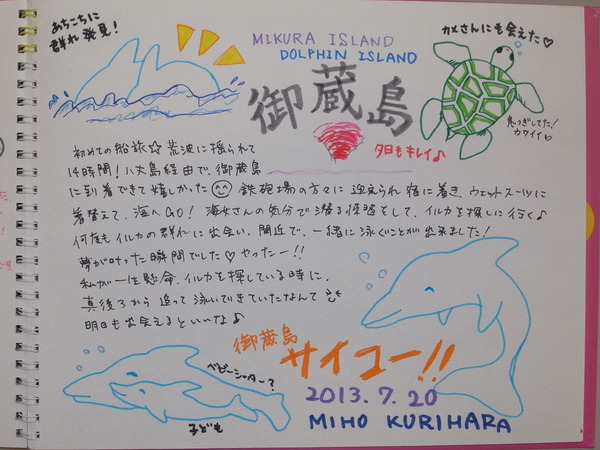 あちこちに
群れ発見!
MIKURA ISLAND
DOLPHIN ISLAND
御蔵島
カメさんにも会えた♡
息つぎしてた!
カワイイ♡
夕日もキレイ♪
初めての船旅☆荒波に揺られて
14時間!八丈島経由で、御蔵島
に到着できて嬉しかった 鉄砲場の方々に迎えられ宿に着き、ウェットスーツに
着替えて、海へGO! 海女さんの気分で潜る練習をして、イルカを探しに行く♪
何度もイルカの群れに出会い、間近で、一緒に泳ぐことが出来ました!
夢が叶った瞬間でした♡やったー!!
私が一生懸命、イルカを探している時に、
真後ろから追って泳いできていたなんて
明日も出会えるといいな♪
御蔵島
サイコー!!
ベビーシッター?
子ども
2013.7.20
MIHO KURIHARA